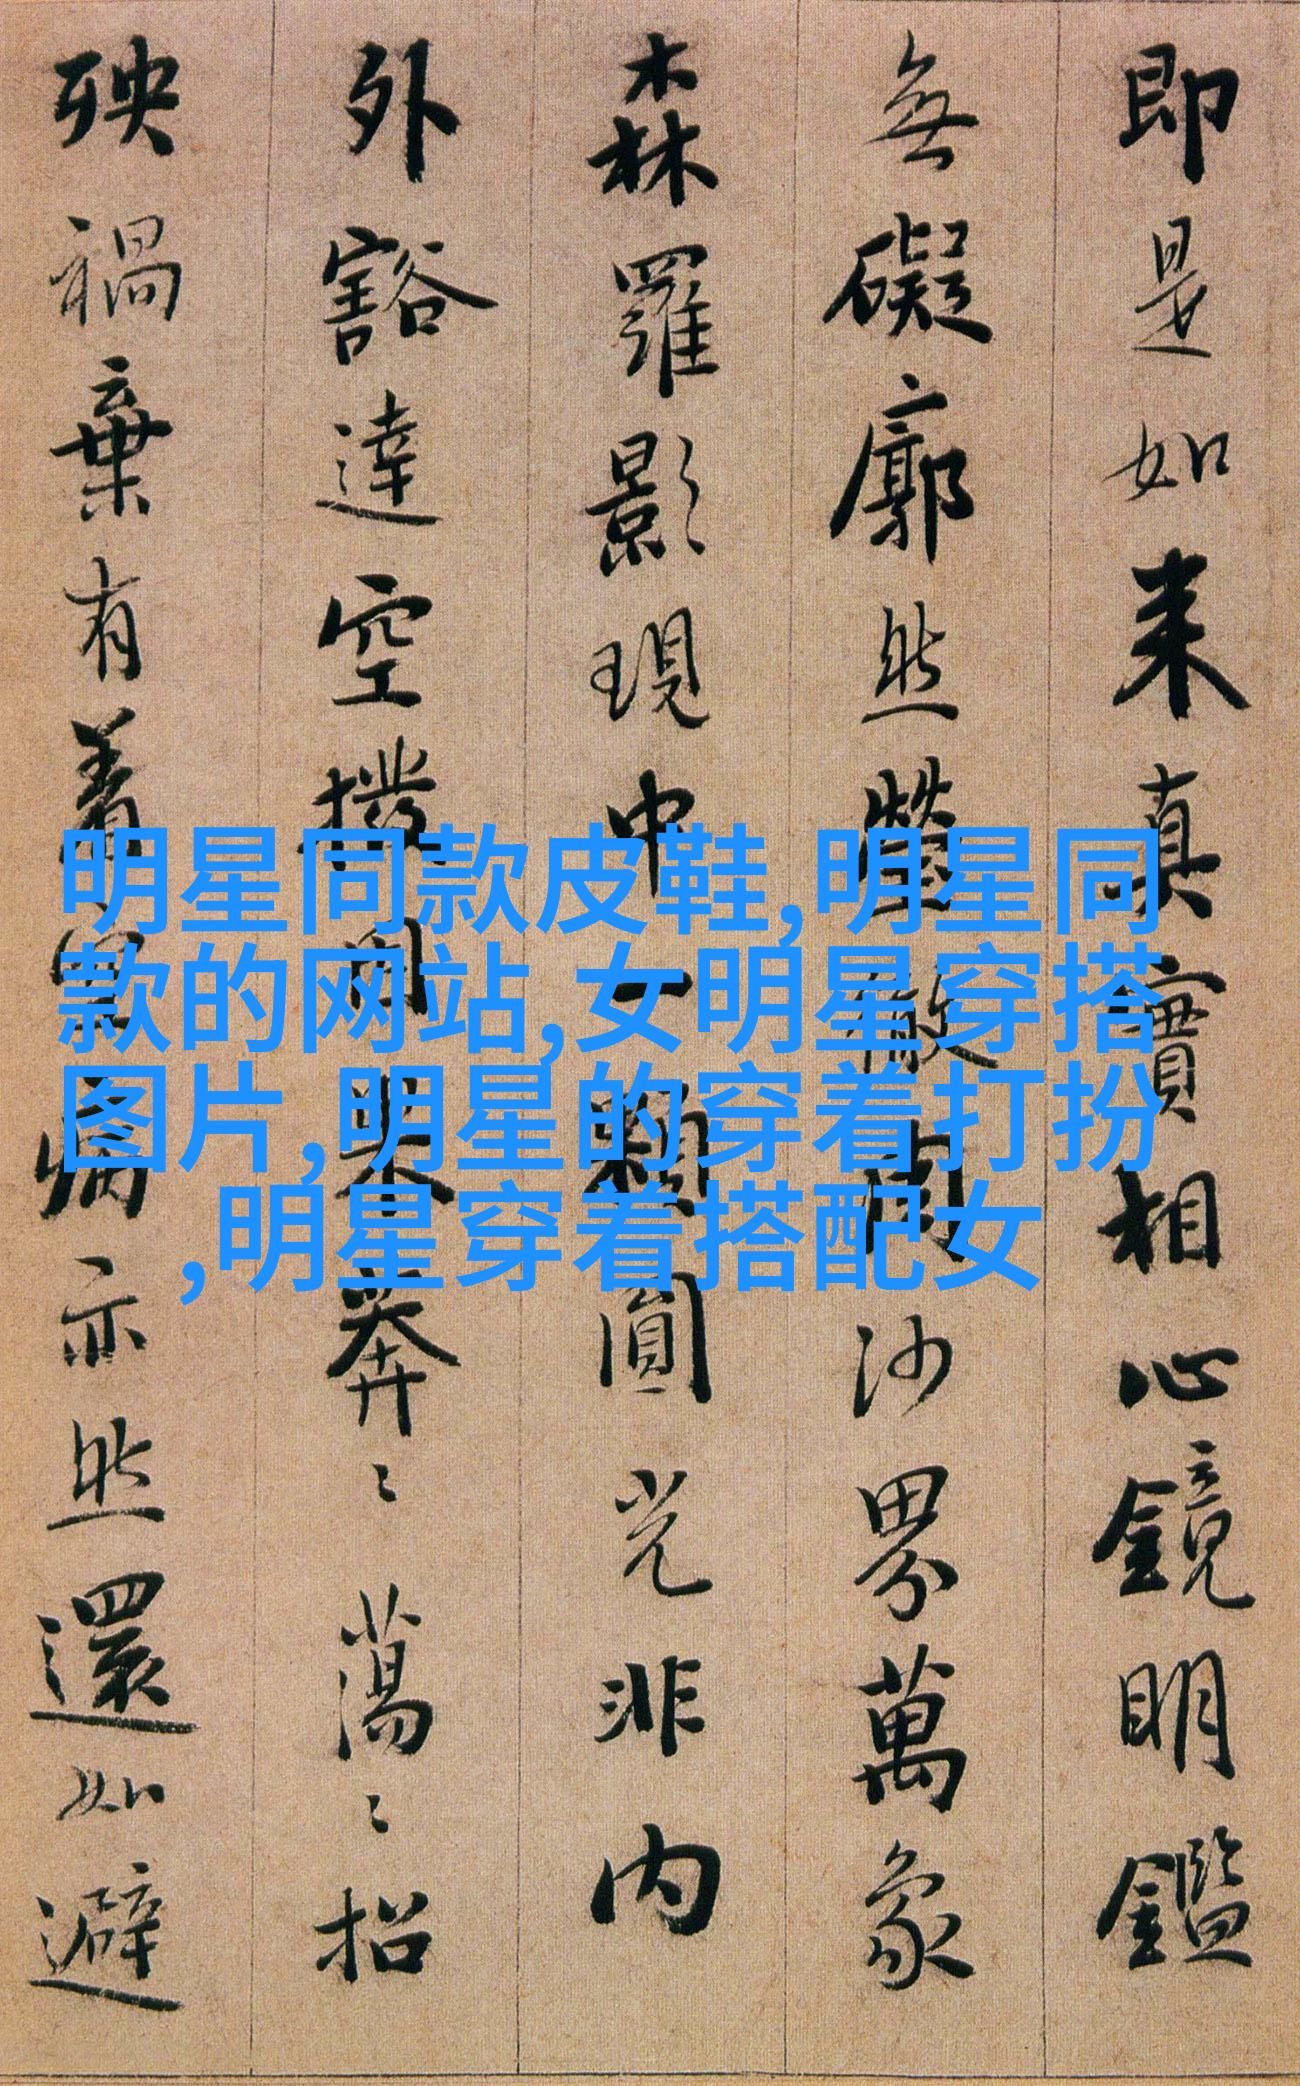 即是如来真實相心鏡明鑑
無礙廓然瑩徹周沙界萬象
森羅影現中一顆圓光非内
外豁達空撥因果莽〻蕩〻招
殃禍棄有著空病亦然還如避
明星同款皮鞋,明星同
款的网站,女明星穿搭
图片,明星的穿着打扮
,明星穿着搭配女